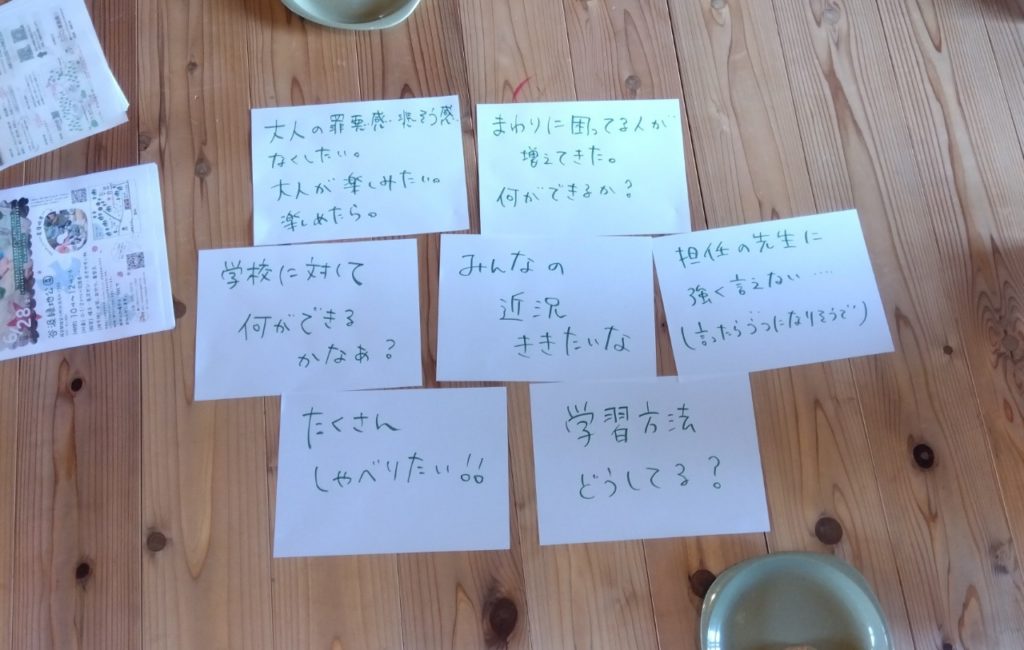 大人の罪悪感・悲そう感
なくしたい。
大人が楽しみたい。
楽しめたら。
まわりに困ってる人が
増えてきた。
何ができるか?
学校に対して
何ができる
かなぁ?
みんなの
近況
ききたいな
担任の先生に
強く言えない….
(言ったらうつになりそうで)
たくさん
しゃべりたい!!
学習方法
どうしてる?
6/28